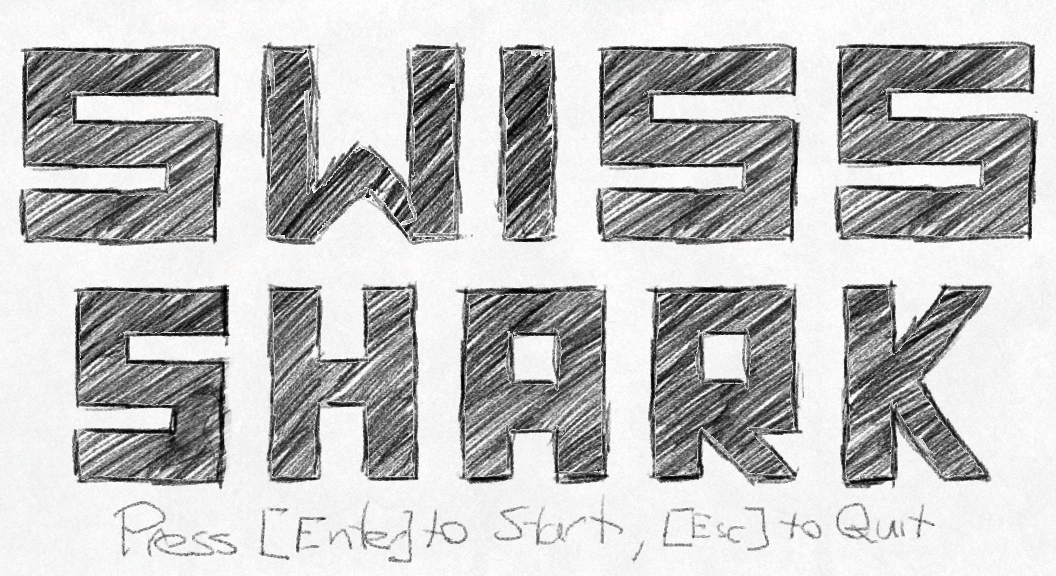 SWISS
SHARK
Press [Enter] to Start, [Esc] to Quit